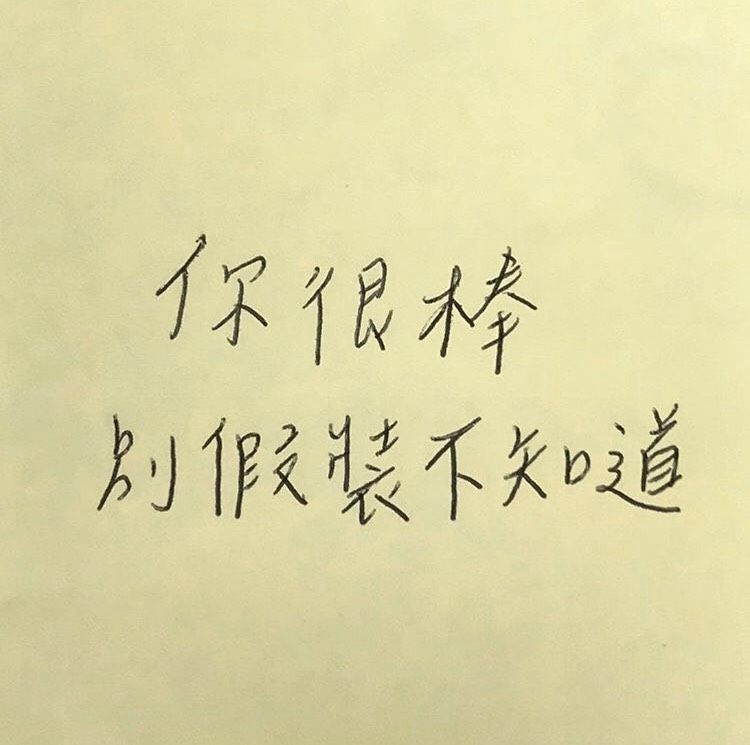 你很棒
別假裝不知道